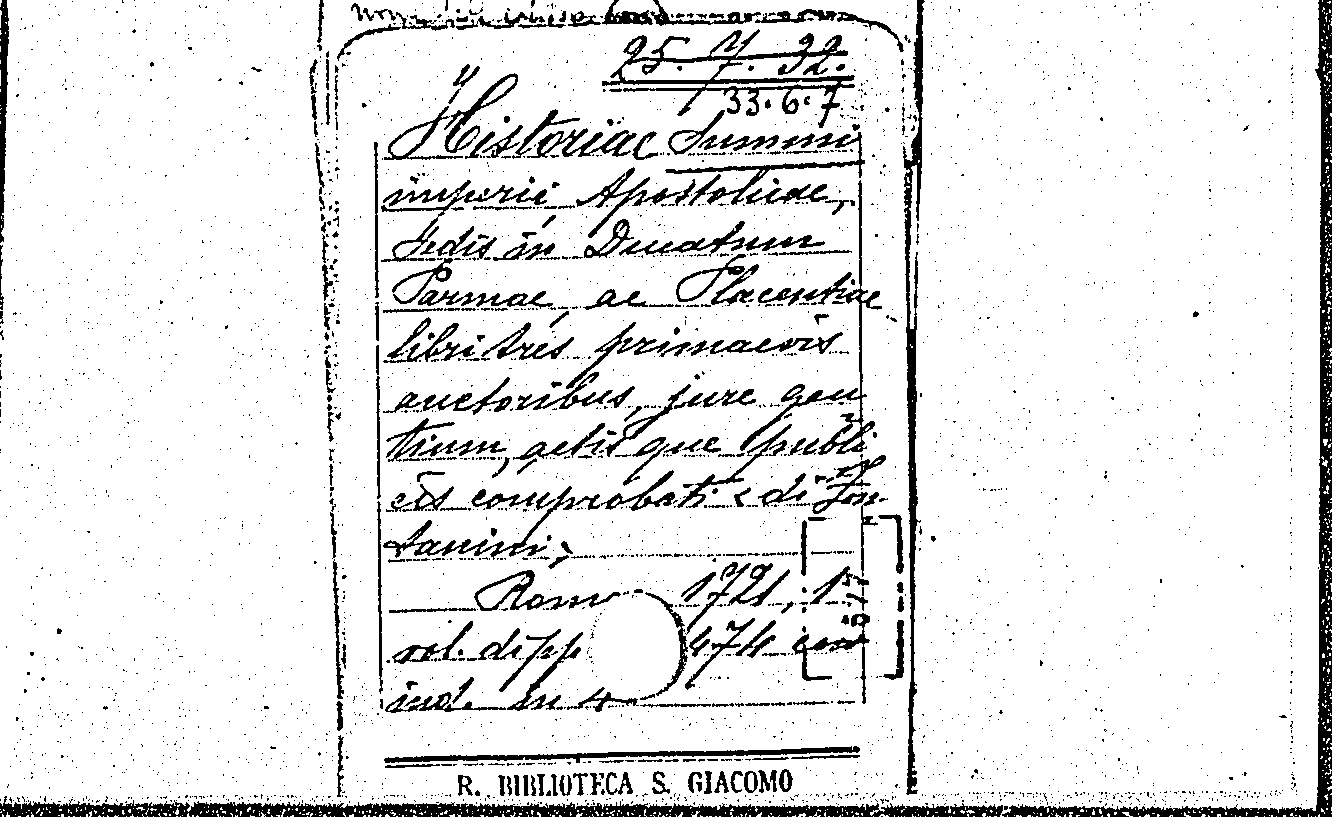 25. 7. 32.
33.6.7
Historiae Summi
imperii Apostolicae,
Sedis in Ducatum
Parmae, ac Placentiae
libri tres primaevis
auctoribus, jure gen
tium, actis que publi
cis comprobati < di Fon
tanini;
Rom 1721, 1
vol. di pp 474 con
ind. in 4
R. BIBLIOTECA S. GIACOMO